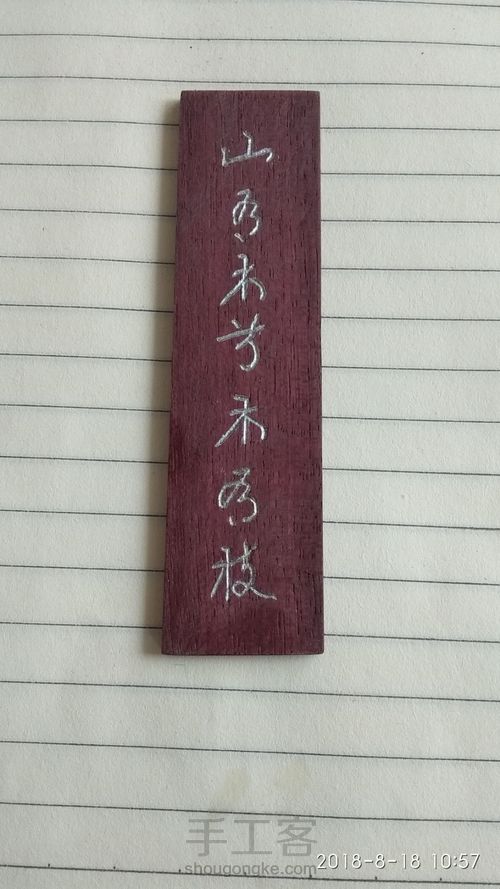 山有木兮木有枝
手工客
shougongke.com
2018-8-18 10:57